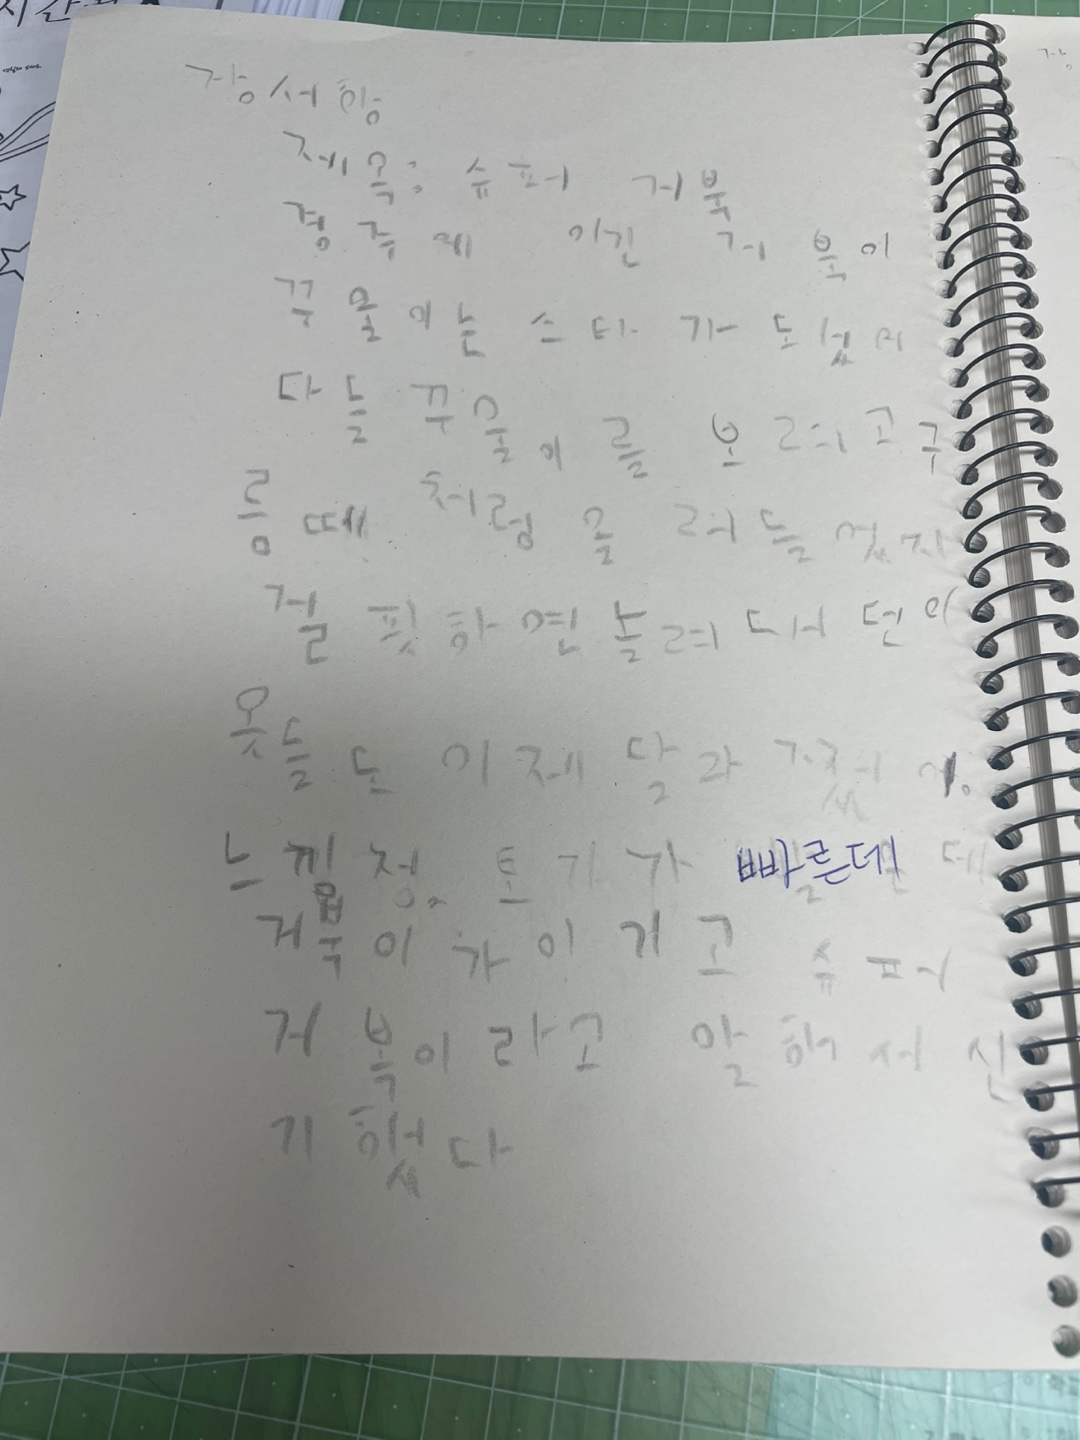 장서항
제목: 슈퍼 거북
경주에 이긴 거북이
꾸물이는 스타가 도섰어
다들 꾸물이를 보려고 구
름떼처럼 몰려들엇지
걸핏하면 놀려대던 이
웃들도 이제 달라젔어.
느낌점. 토끼가 빠른데
거북이가 이기고 슈퍼
거북이라고 말해서 신
기했다